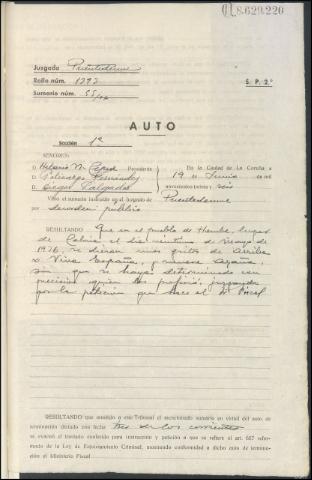 8.629.220
Juzgado Puentedeume
Rollo núm. 1292
S. P. 2.º
Sumario núm. 55/36
AUTO
Sección 1ª
SEÑORES:
D. Presidente
D. Policarpo Fernández
D. Salgado
En la Ciudad de La Coruña a
19 de Junio de mil
novecientos treinta y seis
Visto el sumario instruido en el Juzgado de Puentedeume
por desorden público
RESULTANDO Que en el pueblo de lugar
de el día de Mayo de
1936, se dieron unos gritos de Arriba
o Viva España, y muera Azaña,
sin que se haya determinado con
precisión quien los profirió,
por la petición que hace el M. Fiscal
RESULTANDO que remitido a este Tribunal el mencionado sumario en virtud del auto de
terminación dictado con fecha tres de los corrientes
se evacuó el traslado conferido para instrucción y petición a que se refiere el art. 627 refor-
mado de la Ley de Enjuiciamiento Criminal, mostrando conformidad a dicho auto de termina-
ción el Ministerio Fiscal